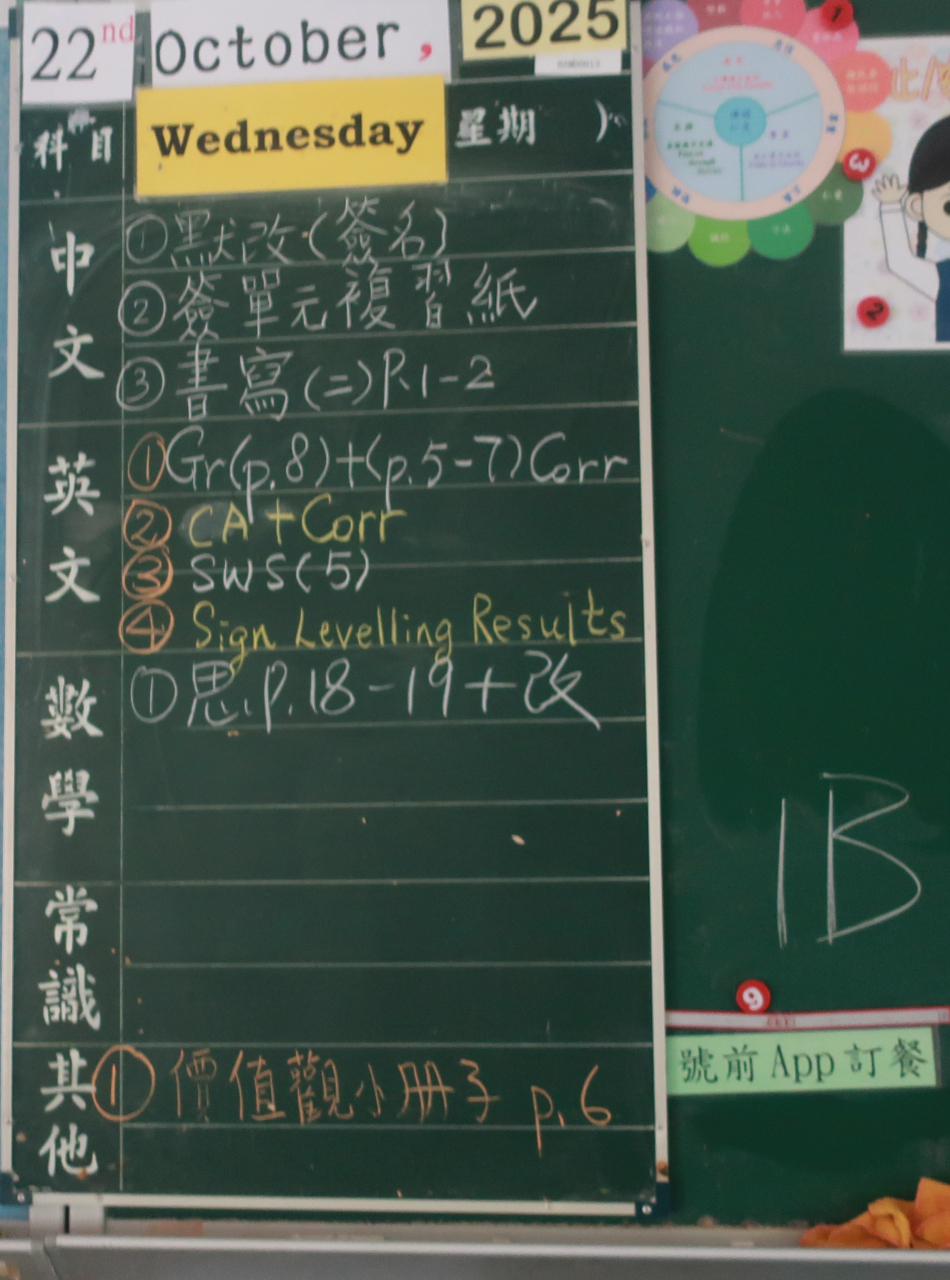 22nd October, 2025
科目 Wednesday 星期 )
中文
①默改(簽名)
②簽單元複習紙
③書寫(二)P.1-2
英文
①Gr(p.8)+(p.5-7)Corr
②CA+Corr
③SWS(5)
④Sign Levelling Results
數學
①思.P.18-19+改
常識
其他
①價值觀小册子 p.6
1
3
2
止
1B
9
號前App訂餐